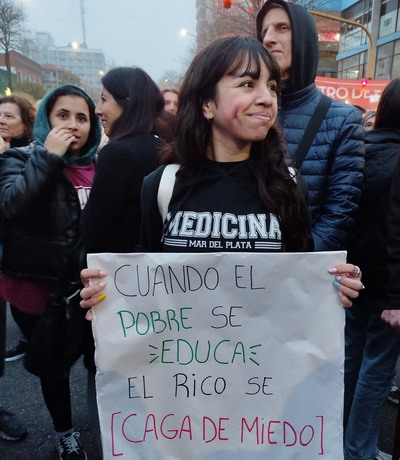 TRO DE
MEDICINA
MAR DEL PLATA
CUANDO EL
POBRE SE
EDUCA
EL RICO SE
[CAGA DE MIEDO]